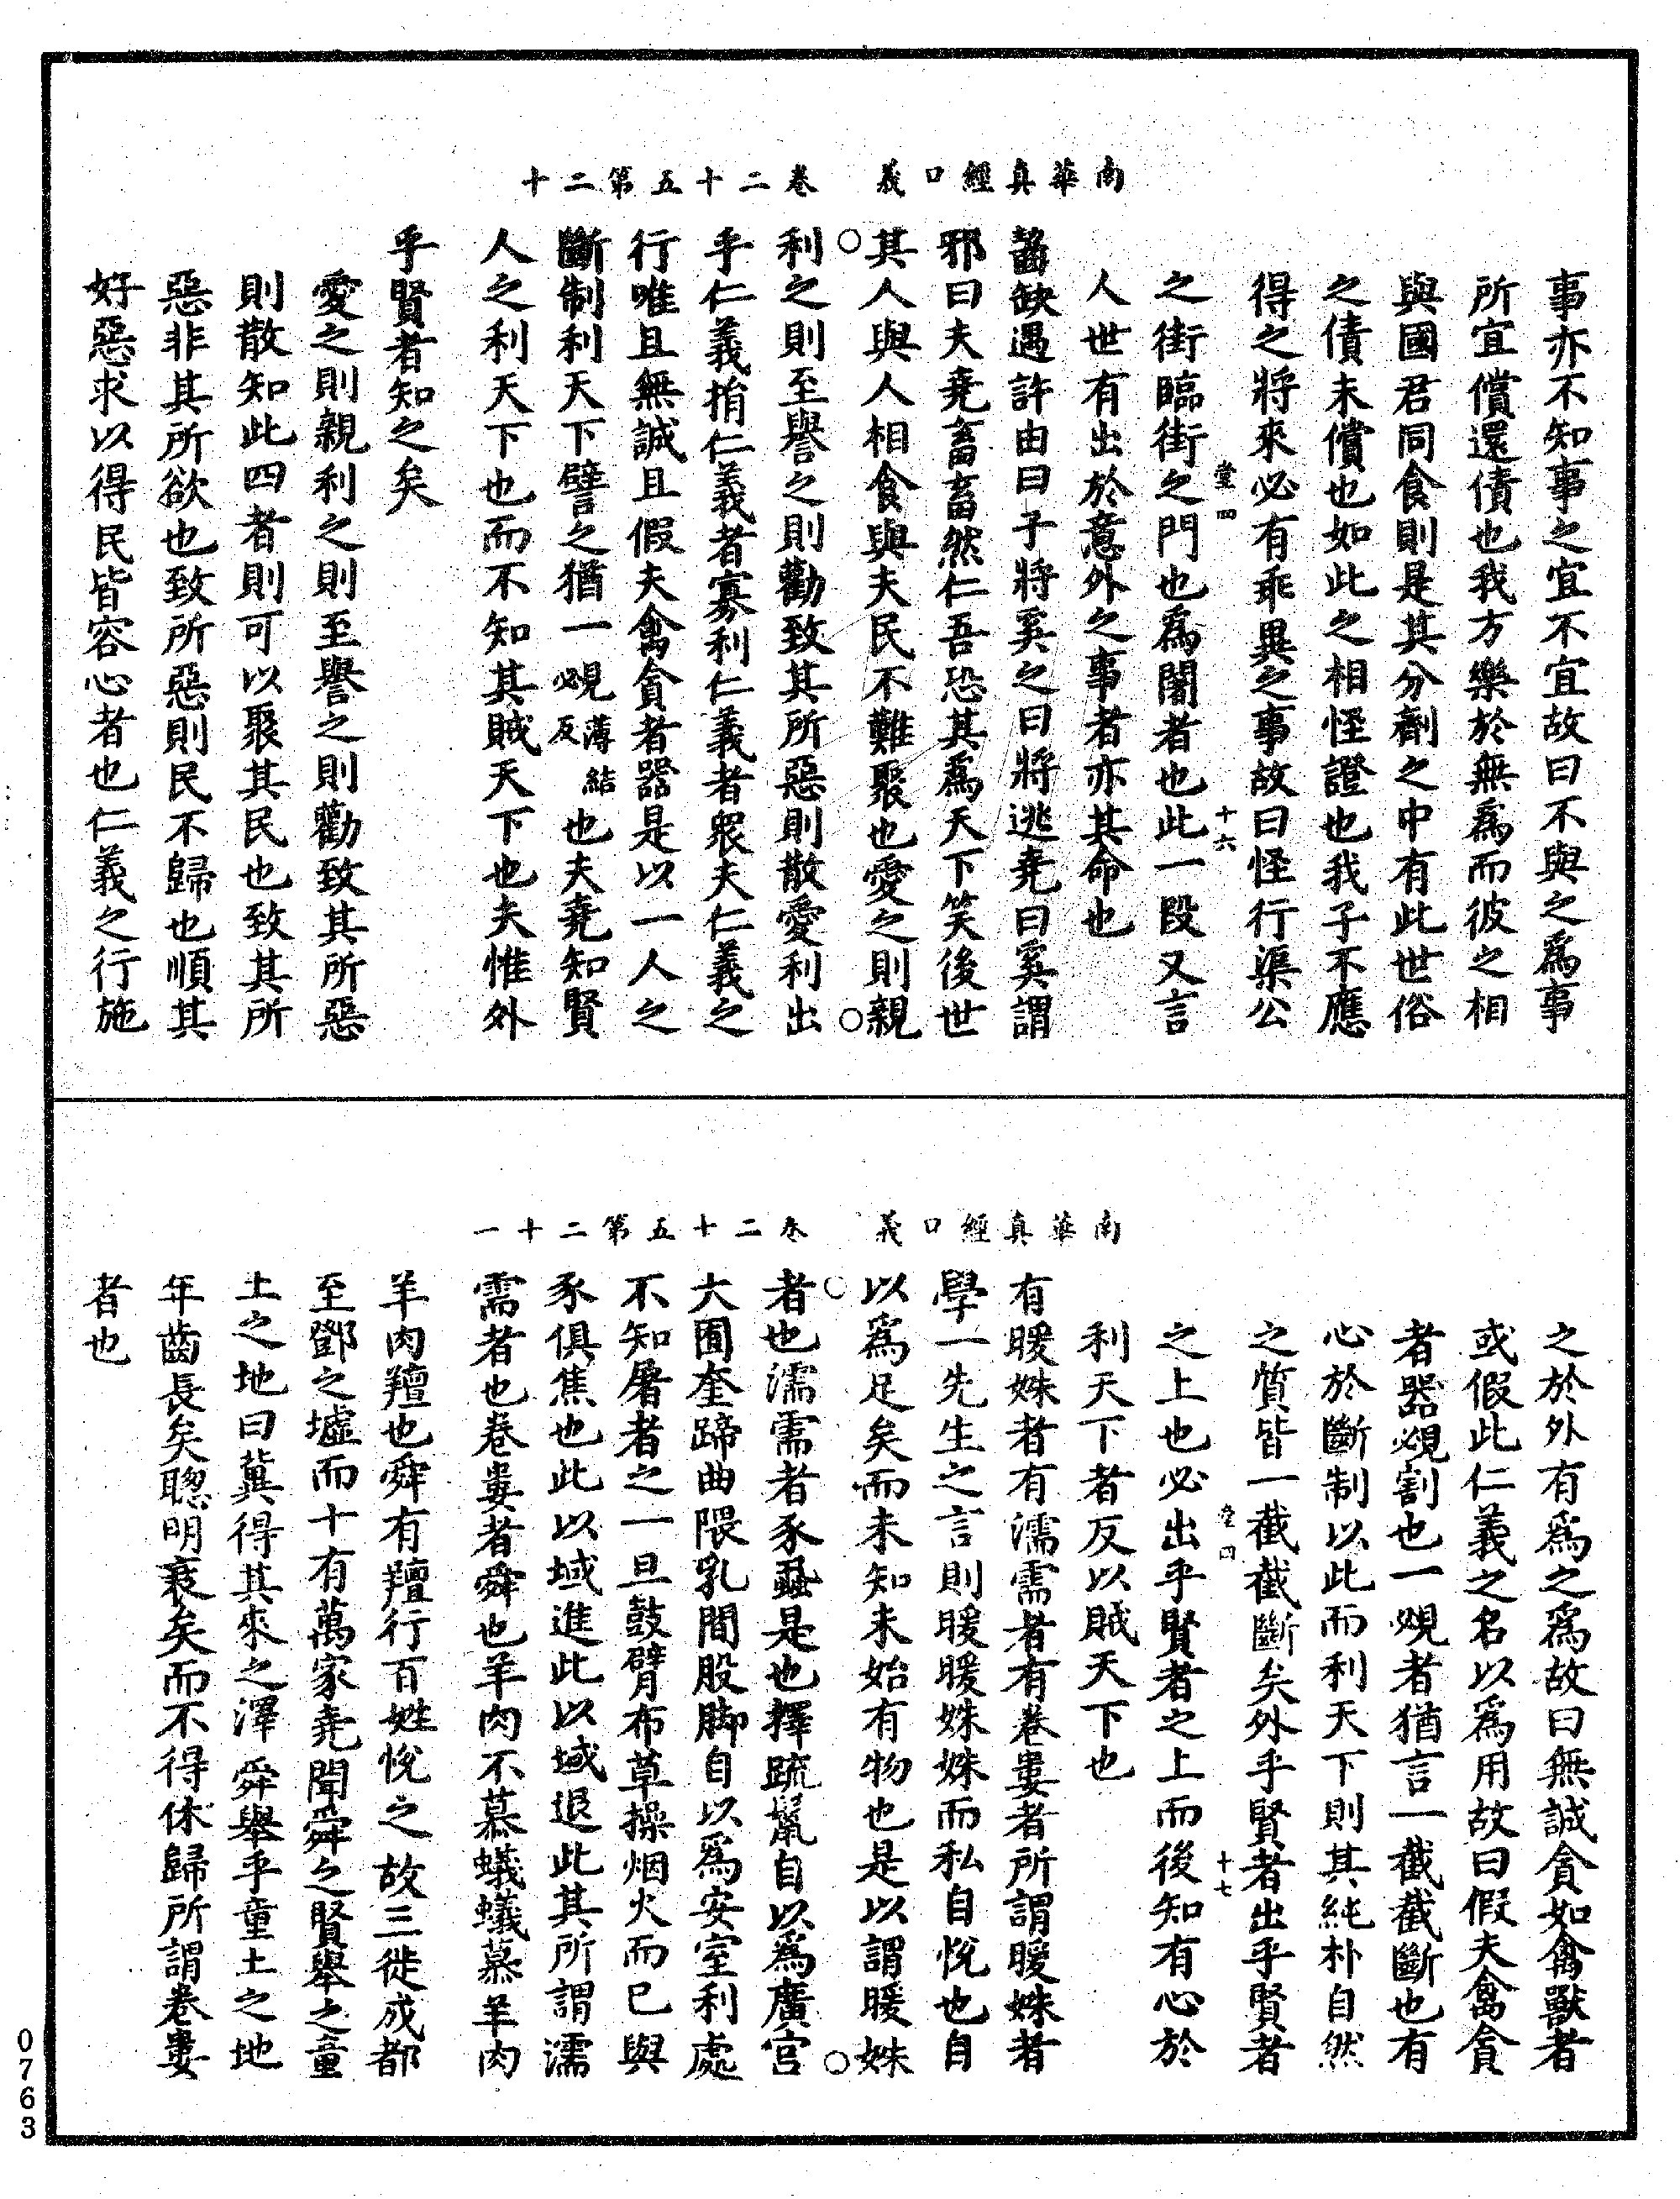 南華真經口義　卷二十五第二十
事亦不知事之宜不宜故曰不與之爲事
所宜償還債也我方樂於無爲而彼之相
與國君同食則是其分劑之中有此世俗
之債未償也如此之相怪證也我子不應
得之將來必有乖異之事故曰怪行渠公
堂四　十六
之街臨街之門也爲閽者也此一段又言
人世有出於意外之事者亦其命也
齧缺遇許由曰子將奚之曰將逃堯曰奚謂
邪曰夫堯畜畜然仁吾恐其爲天下笑後世
其人與人相食與夫民不難聚也愛之則親
利之則至譽之則勸致其所惡則散愛利出
乎仁義捐仁義者寡利仁義者眾夫仁義之
行唯且無誠且假夫禽貪者器是以一人之
斷制利天下譬之猶一覕必薄結反也夫堯知賢
人之利天下也而不知其賊天下也夫惟外
乎賢者知之矣
愛之則親利之則至譽之則勸致其所惡
則散知此四者則可以聚其民也致其所
惡非其所欲也致所惡則民不歸也順其
好惡求以得民皆容心者也仁義之行施
南華真經口義　卷二十五第二十一
之於外有爲之爲故曰無誠貪如禽獸者
或假此仁義之名以爲用故曰假夫禽貪
者器覕割也一覕者猶言一截截斷也有
心於斷制以此而利天下則其純朴自然
之質皆一截截斷矣外乎賢者出乎賢者
堂四　十七
之上也必出乎賢者之上而後知有心於
利天下者反以賊天下也
有暖姝者有濡需者有卷婁者所謂暖姝者
學一先生之言則暖暖姝姝而私自悅也自
以爲足矣而未知未始有物也是以謂暖姝
者也濡需者豕蝨是也擇疏鬣自以爲廣宮
大囿奎蹄曲隈乳間股脚自以爲安室利處
不知屠者之一旦鼓臂布草操烟火而已與
豕俱焦也此以域進此以域退此其所謂濡
需者也卷婁者舜也羊肉不慕蟻蟻慕羊肉
羊肉羶也舜有羶行百姓悅之故三徙成都
至鄧之墟而十有萬家堯聞舜之賢舉之童
土之地曰冀得其來之澤舜舉乎童土之地
年齒長矣聰明衰矣而不得休歸所謂卷婁
者也
0763